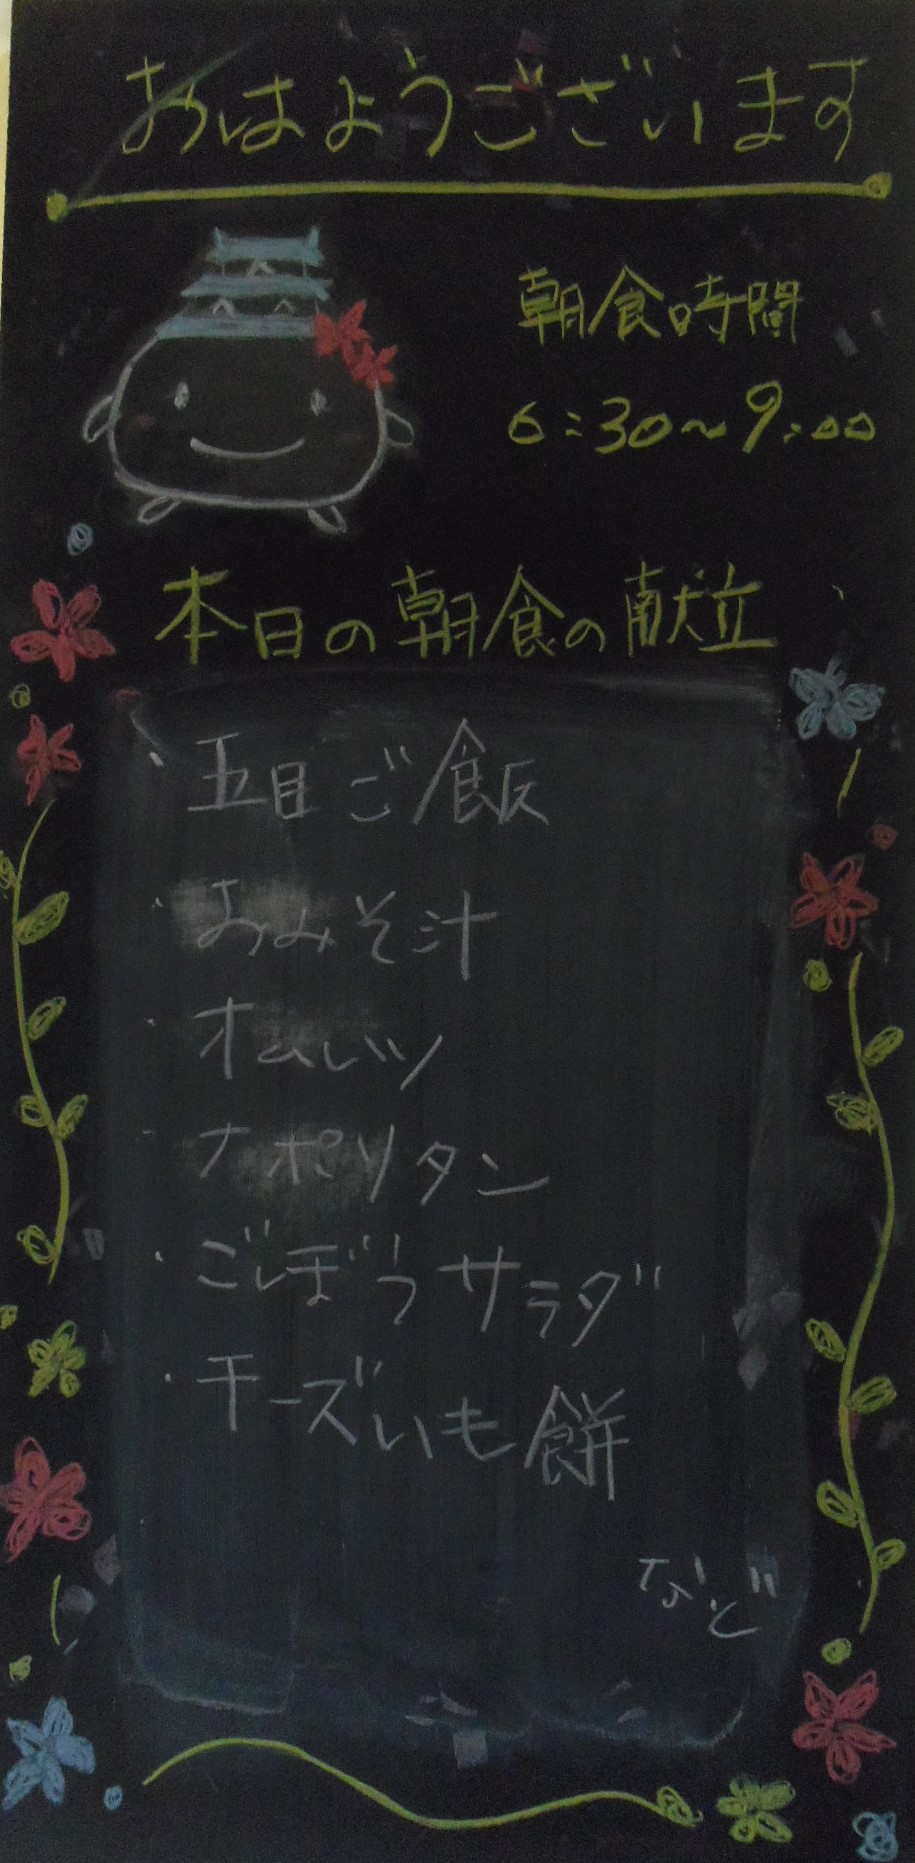 おはようございます
朝食時間
6:30~9:00
本日の朝食の献立
・五目ご飯
・おみそ汁
・オムレツ
・ナポリタン
・ごぼうサラダ
・チーズいも餅
など